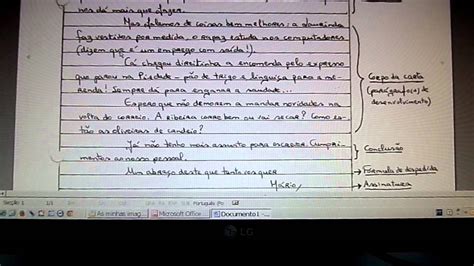 nos dá mais que fazer.
Mas falemos de coisas bem melhores: a Laurinha
faz vestidos por medida, o rapaz estuda nos computadores
(dizem que é um emprego com saída!).
Cá chegou direitinha a encomenda pelo expresso
que parou na Piedade - pão de trigo e linguiça para a me-
renda! Sempre dá para enganar a saudade...
Espero que não demorem a mandar novidades na
volta do correio. A ribeira corre bem ou vai secar? Como es-
tão as oliveiras de candeio?
Já não tenho mais assunto para escrever. Cumpri-
mentos ao nosso pessoal.
Um abraço deste que tanto vos quer
Mário,
Corpo da carta
(parágrafo(s) de
desenvolvimento)
Conclusão
Fórmula de despedida
Assinatura
Secção 1 1/1 Português (Po
As minhas imag... Microsoft Office ... Documento1 -
LG